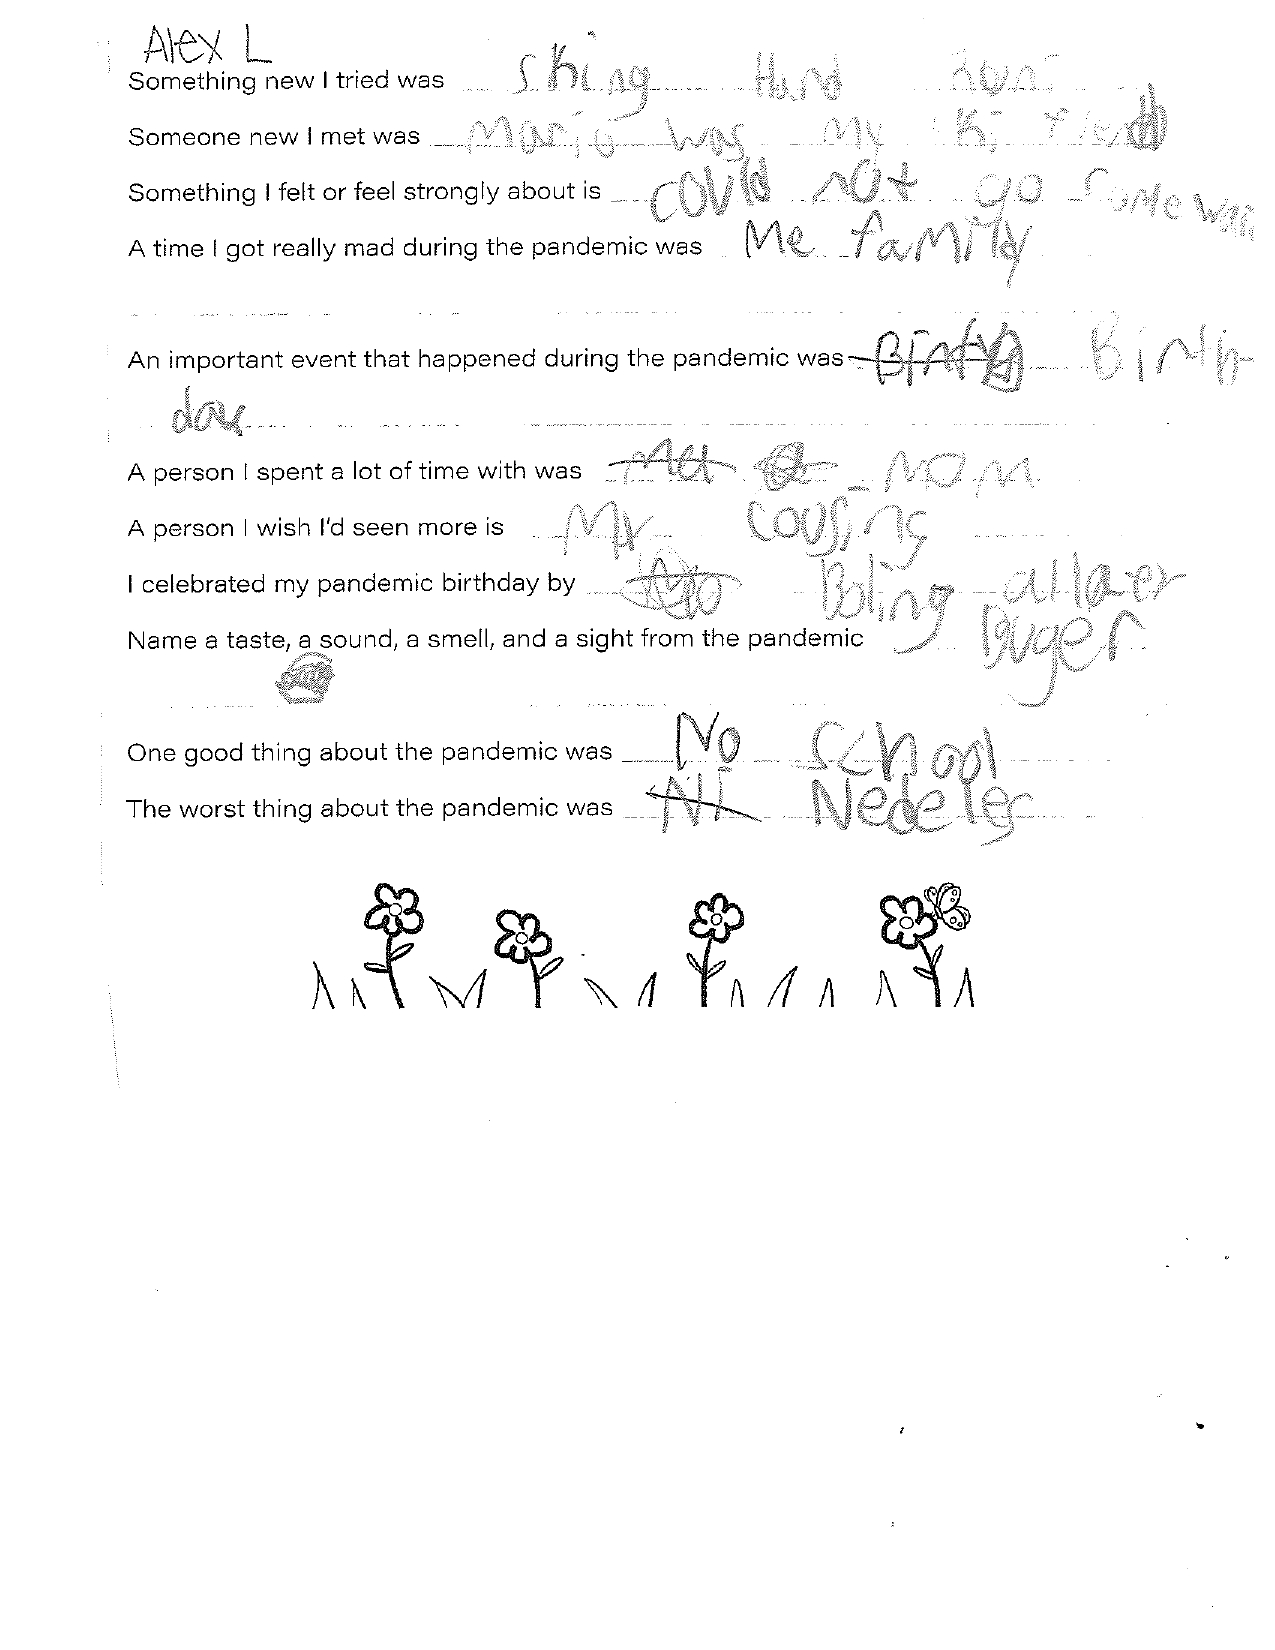 Alex L
Something new I tried was sking Hard runs
Someone new I met was Mario was my ski frend
Something I felt or feel strongly about is could not go some
A time I got really mad during the pandemic was Me family
An important event that happened during the pandemic was Birth
day
A person I spent a lot of time with was Mom
A person I wish I'd seen more is My cousins
I celebrated my pandemic birthday by Boling
Name a taste, a sound, a smell, and a sight from the pandemic
One good thing about the pandemic was No school
The worst thing about the pandemic was Nedeles